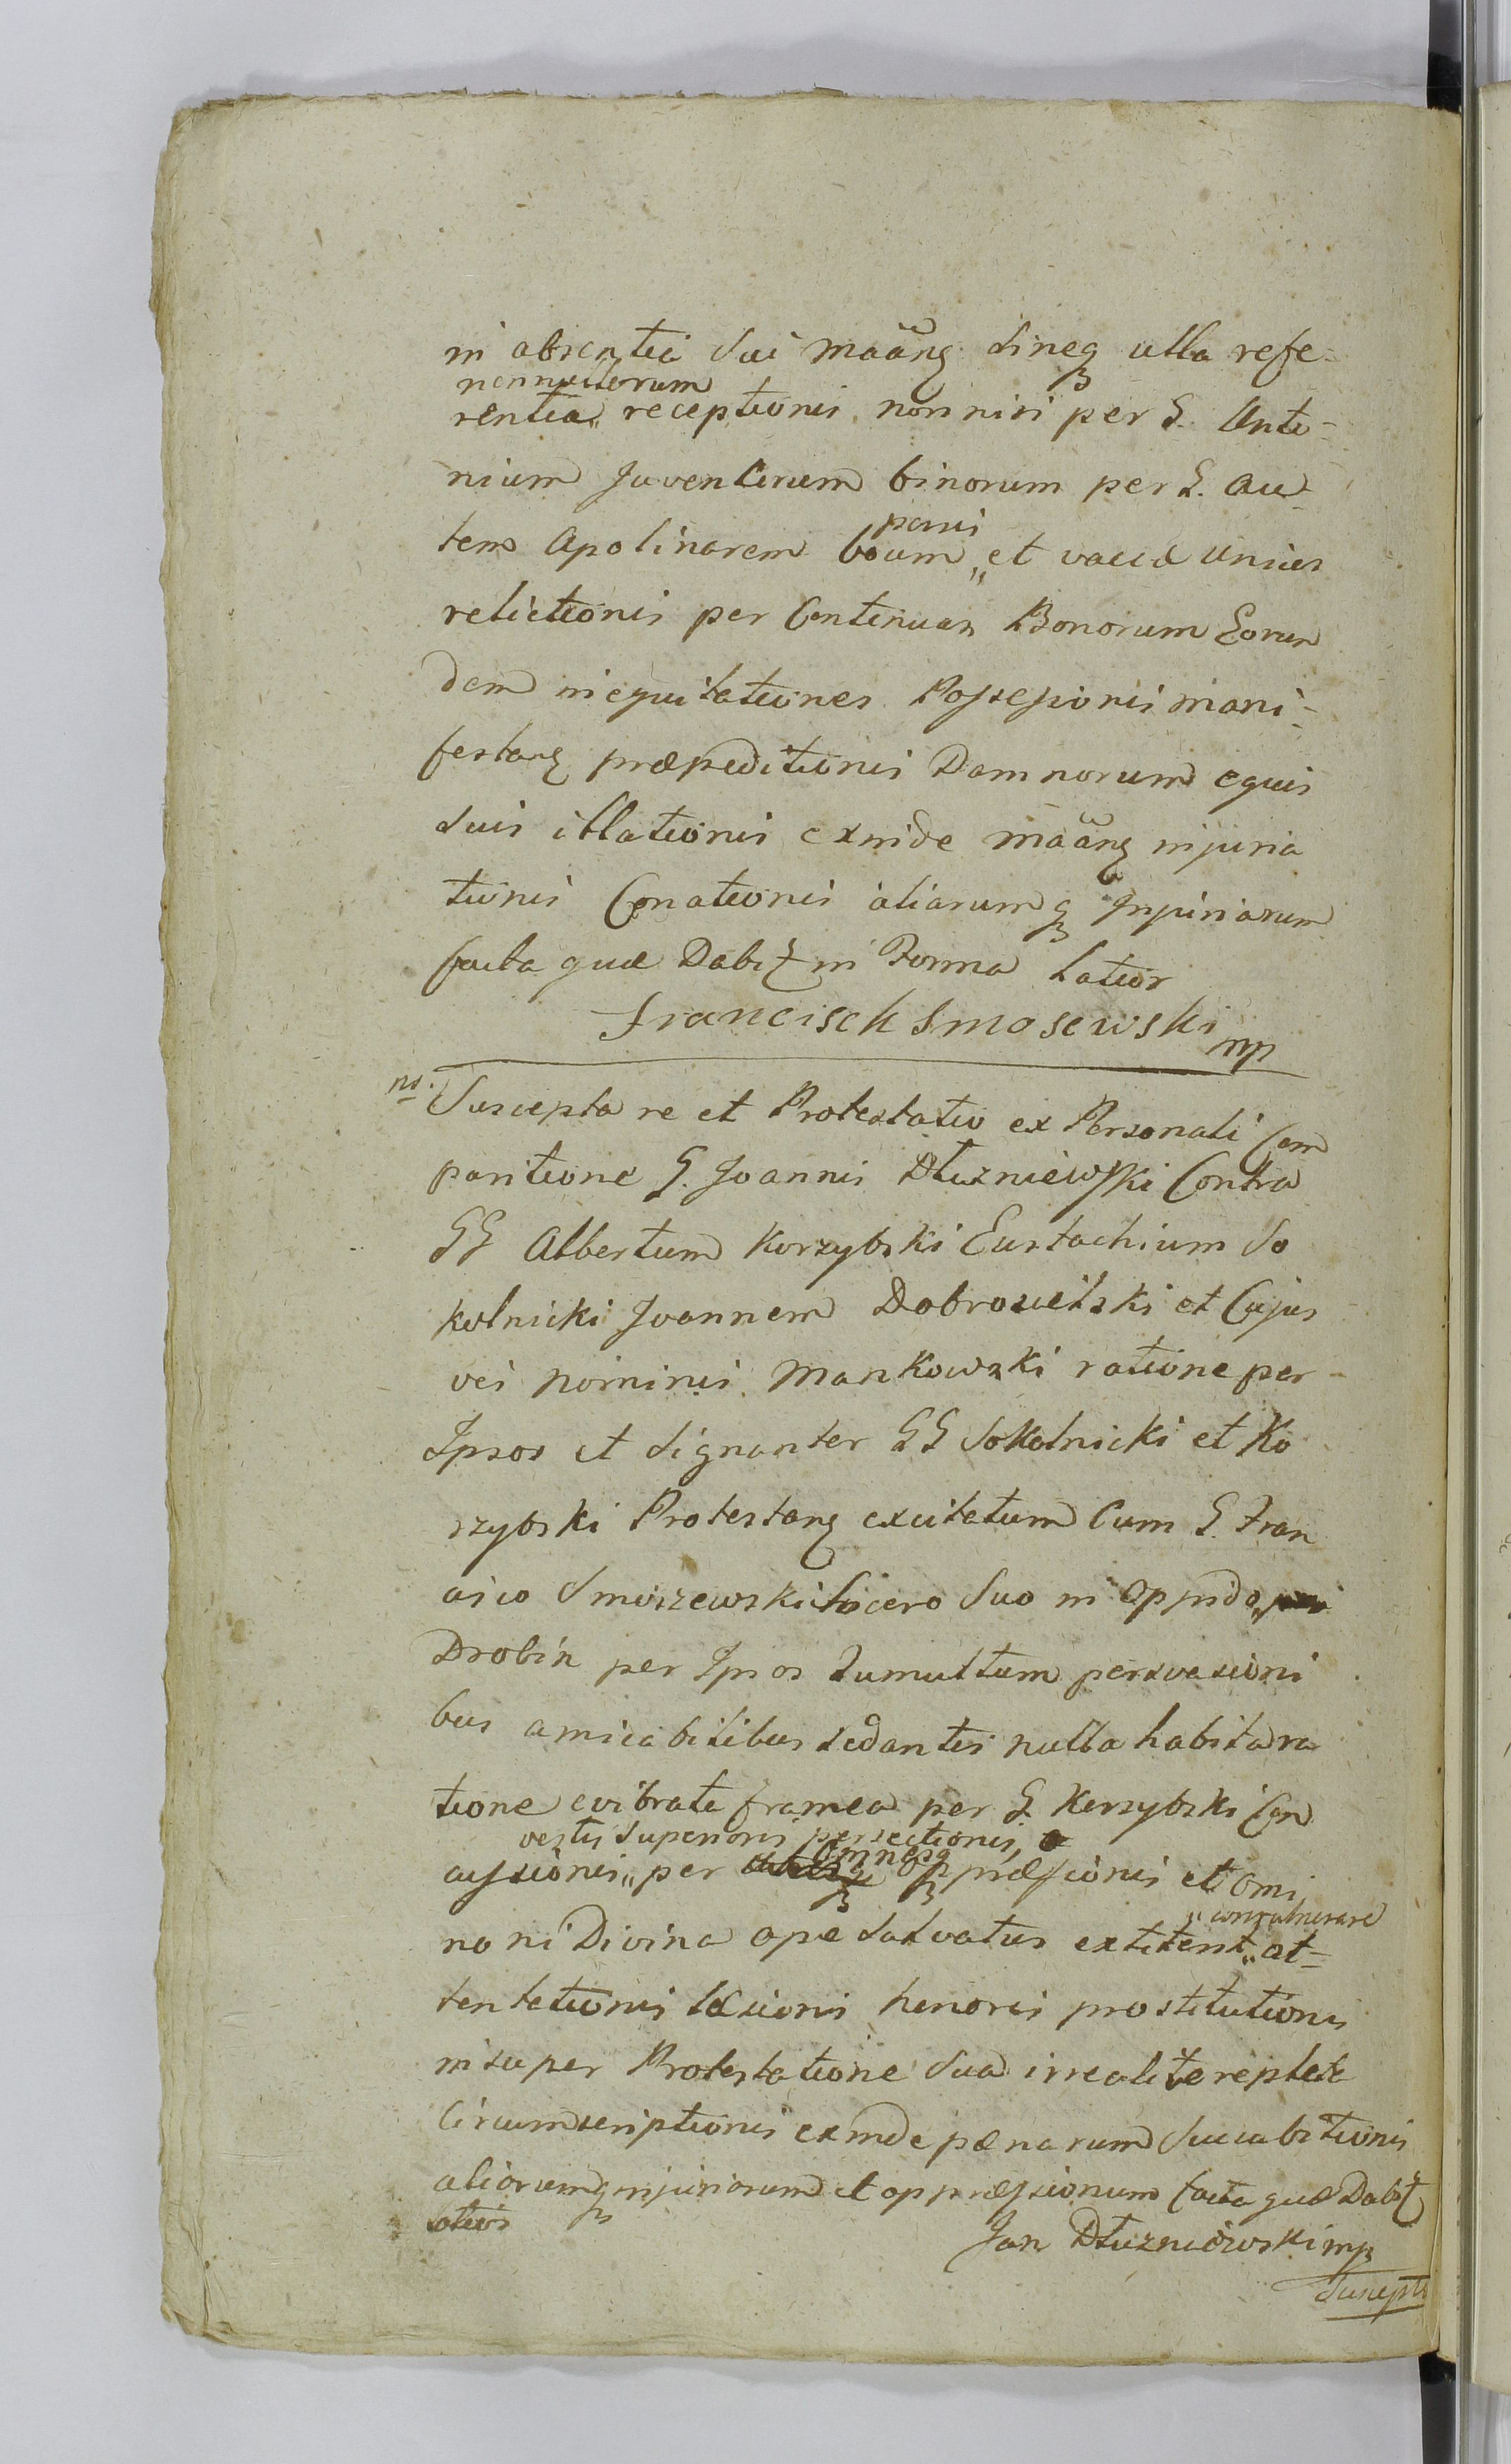 in absentia sui maãng sineq ulla refe-
nonnullorum
rentia„ receptionis non nisi per G. Anto-
nium Juvencorum binorum per G. au-
paris
tem Apolinarem boum „ et vaccæ unius
relictionis per Continuas Bonorum Eorun
dem inequitationes Possessionis mani-
festang præpeditionis Damnorum equis
suis illationis exinde maãng injuria
tionis Conationis aliarumq Injuriarum
facta quæ Dabit in Forma latior
Francisck Smosewski mp
ns. Suscepta re et Protestatio ex Personali Com
paritione G. Joannis Dłuzniewski Contra
GG Albertum Korzybski Eustachium So
kolnicki Joannem Dobrosielski et Cujus
vis nominis Mankowski ratione per
Ipsos et signanter GG Sokolnicki et Ko
rzybski Protestang excitatum Cum G. Fran
cisco Smoszewski Socero suo in Oppido
Drobin per Ipsos tumultum persvasioni
bus amicabilibus sedantis nulla habita ra
tione evibrata framea per G. Korzybski Con
vestis superioris persectionis,
cussionis „ per Omnesq oppræssionis et omi
„ convulnerare
no ni Divina ope salvatus extiterit „ at-
tentationis læsionis honoris prostitutionis
insuper Protestatione sua irrealite repleta
Circumscriptionis exinde pænarum succubitionis
aliarumq injuriarum et oppræssionum facta quæ Dabit
latior
Jan Dłuzniewski mp
Suscepta